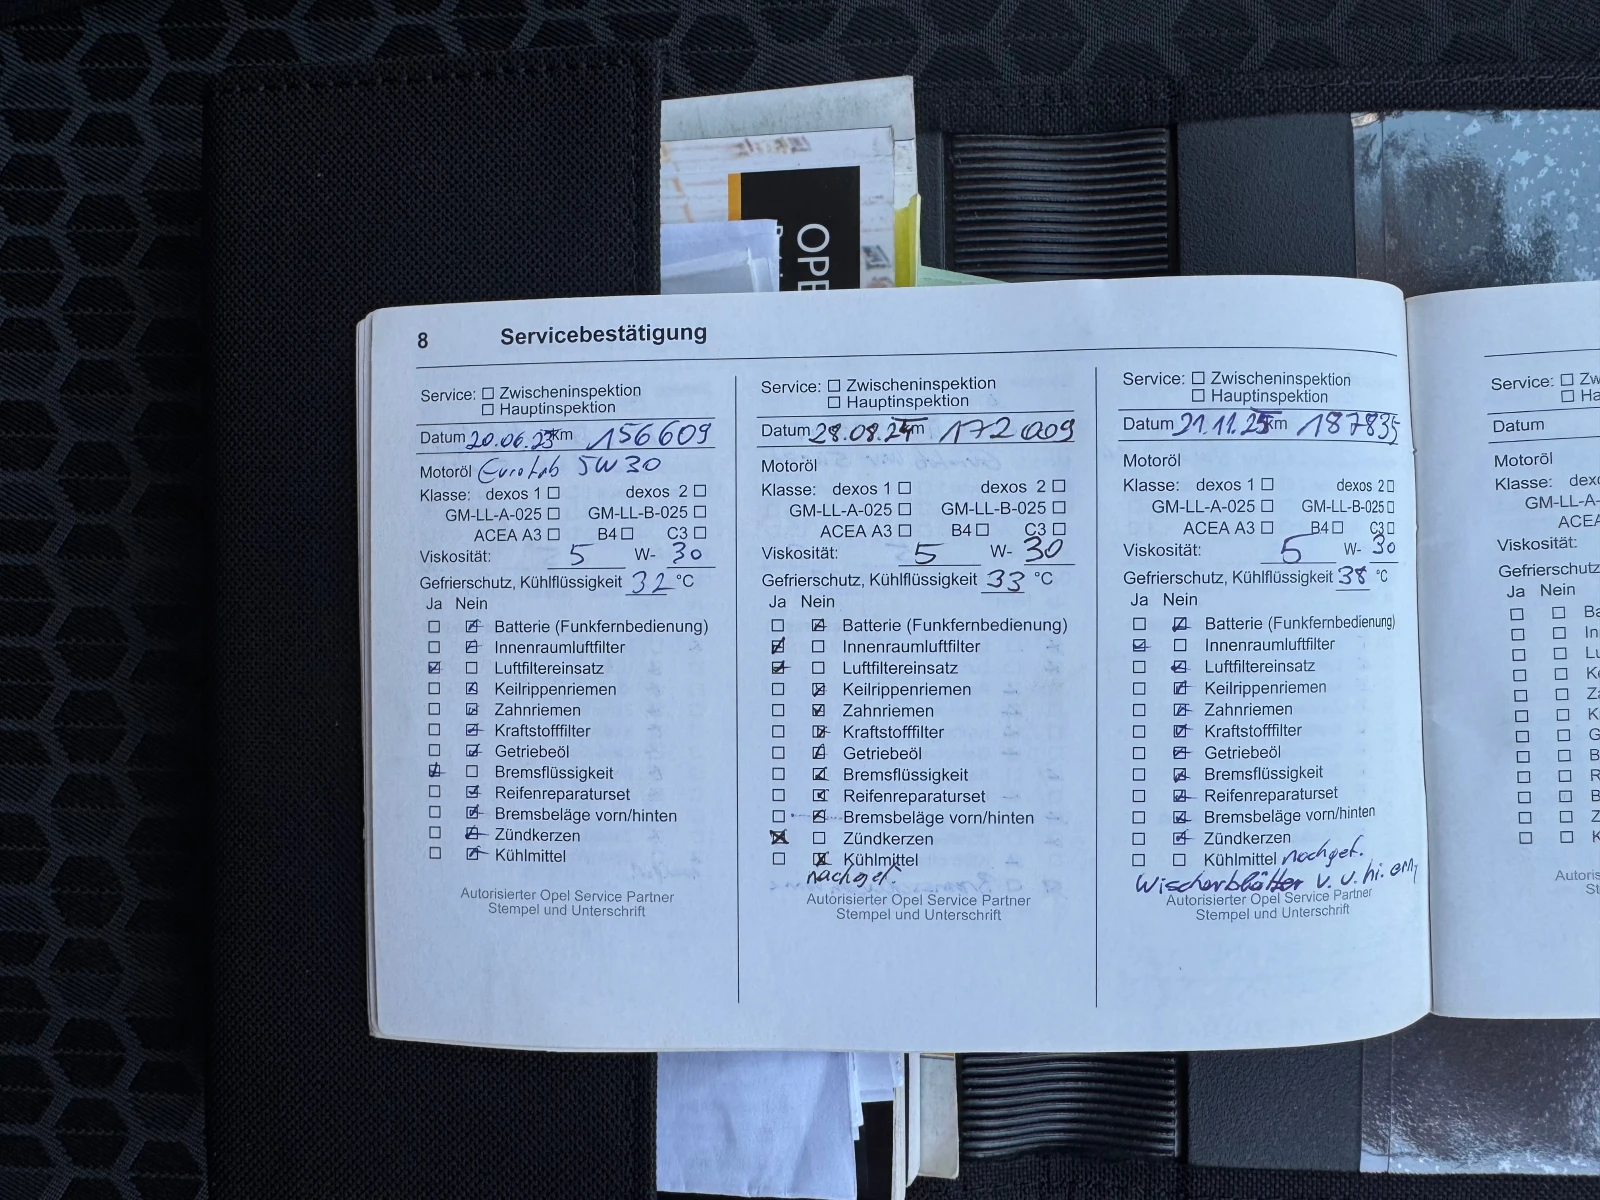 OPE
8 Servicebestätigung
Service: ☐ Zwischeninspektion
☐ Hauptinspektion
Datum 20.06.23 km 156609
Motoröl EuroLub 5W30
Klasse: dexos 1 ☐ dexos 2 ☐
GM-LL-A-025 ☐ GM-LL-B-025 ☐
ACEA A3 ☐ B4 ☐ C3 ☐
Viskosität: 5 W- 30
Gefrierschutz, Kühlflüssigkeit 32 °C
Ja Nein
☐ ☒ Batterie (Funkfernbedienung)
☐ ☒ Innenraumluftfilter
☒ ☐ Luftfiltereinsatz
☐ ☒ Keilrippenriemen
☐ ☒ Zahnriemen
☐ ☒ Kraftstofffilter
☐ ☒ Getriebeöl
☒ ☐ Bremsflüssigkeit
☐ ☒ Reifenreparaturset
☐ ☒ Bremsbeläge vorn/hinten
☐ ☒ Zündkerzen
☐ ☒ Kühlmittel
Autorisierter Opel Service Partner
Stempel und Unterschrift
Service: ☐ Zwischeninspektion
☐ Hauptinspektion
Datum 28.08.24 km 172009
Motoröl
Klasse: dexos 1 ☐ dexos 2 ☐
GM-LL-A-025 ☐ GM-LL-B-025 ☐
ACEA A3 ☐ B4 ☐ C3 ☐
Viskosität: 5 W- 30
Gefrierschutz, Kühlflüssigkeit 33 °C
Ja Nein
☐ ☒ Batterie (Funkfernbedienung)
☒ ☐ Innenraumluftfilter
☒ ☐ Luftfiltereinsatz
☐ ☒ Keilrippenriemen
☐ ☒ Zahnriemen
☐ ☒ Kraftstofffilter
☐ ☒ Getriebeöl
☐ ☒ Bremsflüssigkeit
☐ ☒ Reifenreparaturset
☐ ☒ Bremsbeläge vorn/hinten
☒ ☐ Zündkerzen
☐ ☒ Kühlmittel
nachgef.
Autorisierter Opel Service Partner
Stempel und Unterschrift
Service: ☐ Zwischeninspektion
☐ Hauptinspektion
Datum 21.11.25 km 187835
Motoröl
Klasse: dexos 1 ☐ dexos 2 ☐
GM-LL-A-025 ☐ GM-LL-B-025 ☐
ACEA A3 ☐ B4 ☐ C3 ☐
Viskosität: 5 W- 30
Gefrierschutz, Kühlflüssigkeit 38 °C
Ja Nein
☐ ☒ Batterie (Funkfernbedienung)
☒ ☐ Innenraumluftfilter
☐ ☒ Luftfiltereinsatz
☐ ☒ Keilrippenriemen
☐ ☒ Zahnriemen
☐ ☒ Kraftstofffilter
☐ ☒ Getriebeöl
☐ ☒ Bremsflüssigkeit
☐ ☒ Reifenreparaturset
☐ ☒ Bremsbeläge vorn/hinten
☐ ☒ Zündkerzen
☐ ☐ Kühlmittel nachgef.
Wischerblätter v. u. hi.
Autorisierter Opel Service Partner
Stempel und Unterschrift
Service: ☐ Zw
☐ Ha
Datum
Motoröl
Klasse: d
GM-LL-A-
ACEA
Viskosität:
Gefrierschutz
Ja Nein
☐ ☐ Ba
☐ ☐ In
☐ ☐ Lu
☐ ☐ Ke
☐ ☐ Za
☐ ☐ K
☐ ☐ G
☐ ☐ B
☐ ☐ R
☐ ☐ B
☐ ☐ Z
☐ ☐ K
Autoris
St